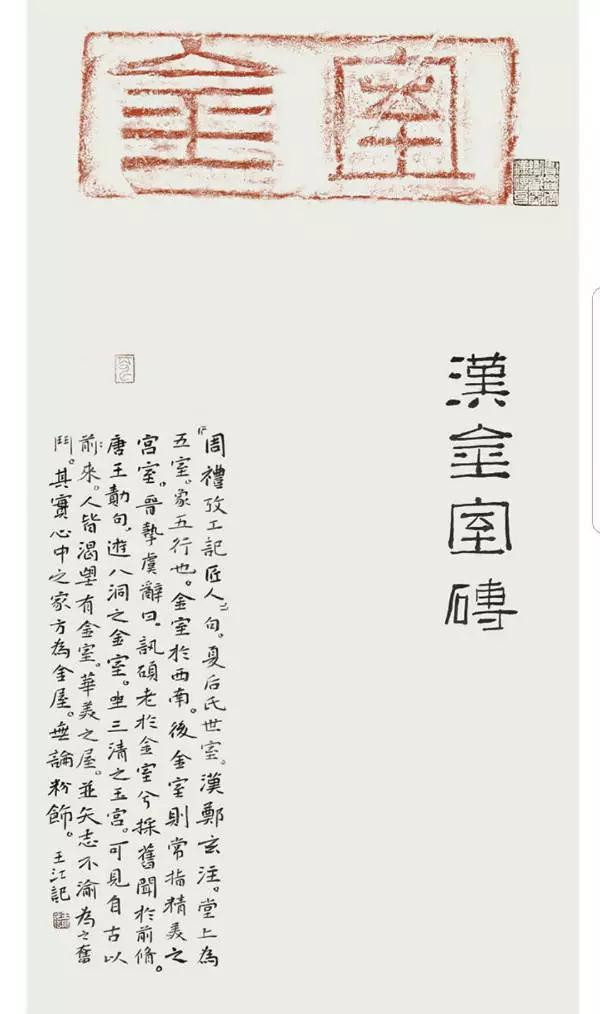 金室
漢金室磚
“周禮攷工記匠人”句。夏后氏世室。漢鄭玄注。堂上為
五室。象五行也。金室於西南。後金室則常指精美之
宮室。晉摯虞辭曰。訊碩老於金室兮採舊聞於前脩。
唐王勣句。遊八洞之金室。坐三清之玉宮。可見自古以
前來。人皆渴望有金室。華美之屋。並矢志不渝為之奮
鬥。其實心中之家方為金屋。無論粉飾。王江記